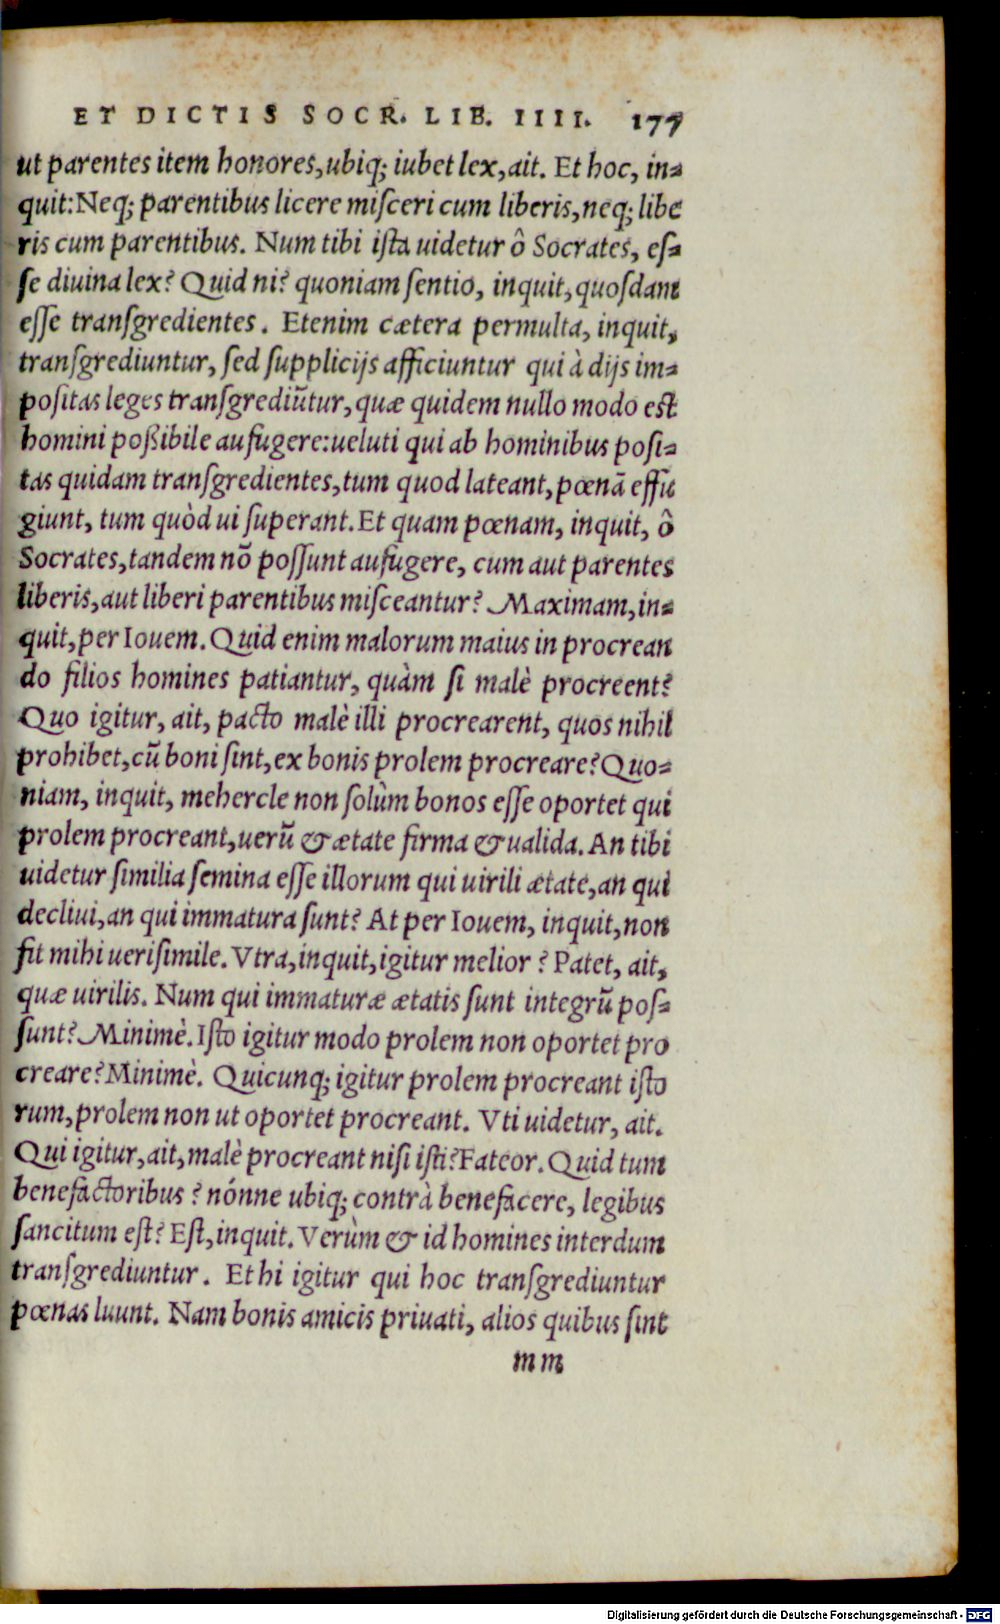 ET DICTIS SOCR. LIB. IIII. 177
ut parentes item honores, ubiq; iubet lex, ait. Et hoc, in-
quit: Neq; parentibus licere misceri cum liberis, neq; libe
ris cum parentibus. Num tibi ista uidetur ô Socrates, es-
se diuina lex? Quid ni? quoniam sentio, inquit, quosdam
esse transgredientes. Etenim cætera permulta, inquit,
transgrediuntur, sed supplicijs afficiuntur qui à dijs im-
positas leges transgrediũtur, quæ quidem nullo modo est
homini poßibile aufugere: ueluti qui ab hominibus posi-
tas quidam transgredientes, tum quod lateant, pœnã effu
giunt, tum quòd ui superant. Et quam pœnam, inquit, ô
Socrates, tandem nõ possunt aufugere, cum aut parentes
liberis, aut liberi parentibus misceantur? Maximam, in-
quit, per Iouem. Quid enim malorum maius in procrean
do filios homines patiantur, quàm si malè procreent?
Quo igitur, ait, pacto malè illi procrearent, quos nihil
prohibet, cũ boni sint, ex bonis prolem procreare? Quo-
niam, inquit, mehercle non solùm bonos esse oportet qui
prolem procreant, uerũ & ætate firma & ualida. An tibi
uidetur similia semina esse illorum qui uirili ætate, an qui
decliui, an qui immatura sunt? At per Iouem, inquit, non
fit mihi uerisimile. Vtra, inquit, igitur melior? Patet, ait,
quæ uirilis. Num qui immaturæ ætatis sunt integrũ pos-
sunt? Minimè. Isto igitur modo prolem non oportet pro
creare? Minimè. Quicunq; igitur prolem procreant isto
rum, prolem non ut oportet procreant. Vti uidetur, ait.
Qui igitur, ait, malè procreant nisi isti? Fateor. Quid tum
benefactoribus? nónne ubiq; contrà benefacere, legibus
sancitum est? Est, inquit. Verùm & id homines interdum
transgrediuntur. Et hi igitur qui hoc transgrediuntur
pœnas luunt. Nam bonis amicis priuati, alios quibus sint
mm
Digitalisierung gefördert durch die Deutsche Forschungsgemeinschaft - DFG